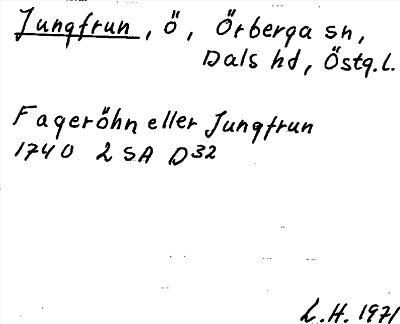 Jungfrun, ö, Örberga sn,
Dals hd, Östg.l.
Fageröhn eller Jungfrun
1740 2 SA D32
L.H. 1971